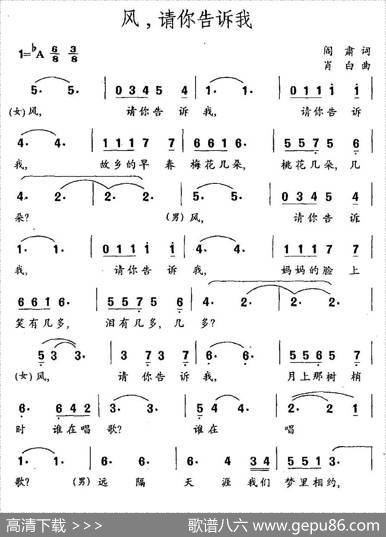 风，请你告诉我
1=♭A 6/8 3/8
阎肃 词
肖白 曲
5· 5· | 0 3 4 5 4 | 1· 1· | 0 1 1 1 i |
(女)风， 请你告诉 我， 请你告诉
4· 4· | 1 1 1 7 7 | 6 6 1 6· | 5 5 7 5 6 |
我， 故乡的早春 梅花几朵， 桃花几朵，几
4· 2· | 2· 2· | 5· 5· | 0 3 4 5 4 |
朵？ (男)风， 请你告诉
1· 1· | 0 1 1 1 i | 4· 4· | 1 1 1 7 7 |
我， 请你告诉 我， 妈妈的脸上
6 6 1 6· | 5 5 7 5 6 | 4· 2· | 2· 2· |
笑有几多， 泪有几多，几 多？
5 3 3· | 3 7 3 7 | 6· 6· | 5 5 5 6 7 |
(女)风， 请你告诉 我， 月上那树梢
6· 6 4 2 | 3· 3· | 5 4 4· | 2· 2 2 1 |
时 谁在唱 歌？ 谁在 唱
1· 1· | 6· 6· | 6· 6 3 4 | 5 5 1 3· |
歌？ (男)远 隔 天 涯我们 梦里相约，
高清下载 >>>
歌谱八六 www.gepu86.com